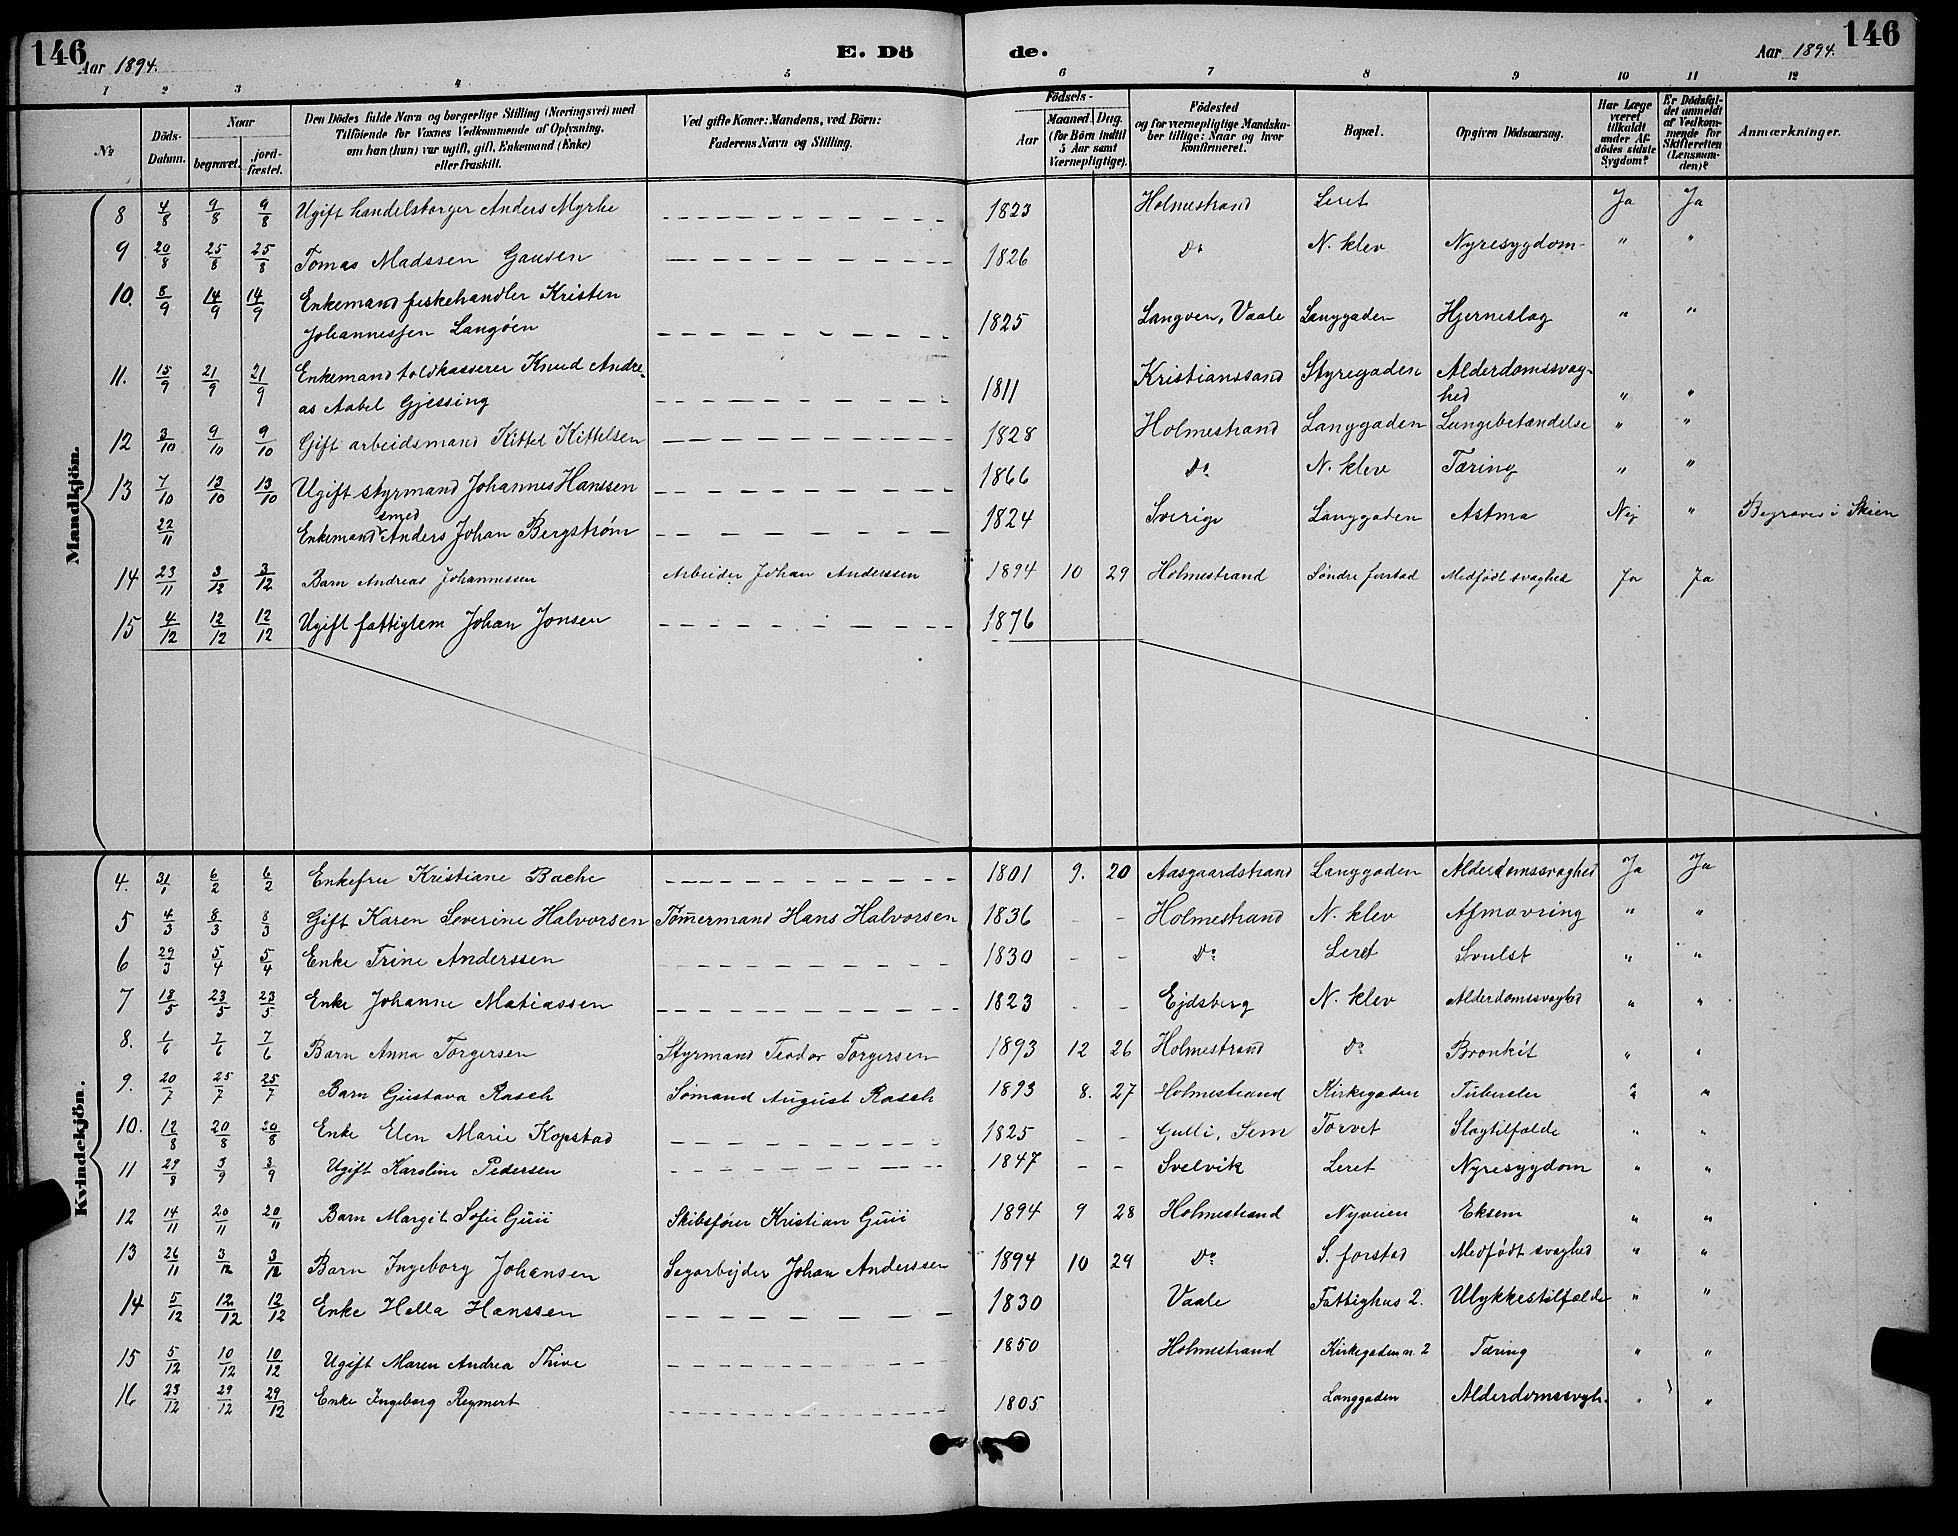 146 Aar 1894. E. Dö
de. Aar 1894. 146
1 2 3 4 5 6 7 8 9 10 11 12
No
Döds-Datum.
Naar
begravet.
jord-fæstet.
Den Dödes fulde Navn og borgerlige Stilling (Næringsvei) med
Tilföiende for Voxnes Vedkommende af Oplysning,
om han (hun) var ugift, gift, Enkemand (Enke)
eller fraskilt.
Ved gifte Koner: Mandens, ved Börn:
Faderens Navn og Stilling.
Födsels-
Aar
Maaned Dag.
(for Börn indtil
5 Aar samt
Værnepligtige).
Födested
og for værnepligtige Mandska-
ber tillige: Naar og hvor
konfirmeret.
Bopæl.
Opgiven Dödsaarsag.
Har Læge
været
tilkaldt
under Af-
dödes sidste
Sygdom?
Er Dödsfal-
det anmeldt
af Vedkom-
mende for
Skifteretten
(Lensman-
den)?
Anmærkninger.
Mandkjön.
8 4/8 9/8 9/8 Ugift handelsborger Anders Myrhe 1823 Holmestrand Leret Ja Ja
9 20/8 25/8 25/8 Tomas Madssen Gausen 1826 Do N. klev Nyresygdom- " "
10. 8/9 14/9 14/9 Enkemand fiskehandler Kristen
Johannessen Langöen 1825 Langøen, Vaale Langgaden Hjerneslag " "
11. 15/9 21/9 21/9 Enkemand toldkasserer Knud Andre-
as Aabel Gjessing 1811 Kristianssand Styregaden Alderdomssvag-
hed " "
12 3/10 9/10 9/10 Gift arbeidsmand Kittel Kittelsen 1828 Holmestrand Langgaden Lungebetændelse " "
13 7/10 13/10 13/10 Ugift styrmand Johannes Hanssen 1866 Do N. klev Tæring " "
22/11 Enkemand smed Anders Johan Bergstrøm 1824 Sverige Langgaden Astma Nej " Begraves i Skien
14 23/11 3/12 3/12 Barn Andreas Johannessen Arbeider Johan Anderssen 1894 10 29 Holmestrand Søndre forstad Medfødt svaghed Ja Ja
15 4/12 12/12 12/12 Ugift fattiglem Johan Jonsen 1876
Kvindekjön.
4. 31/1 6/2 6/2 Enkefru Kristiane Bache 1801 9. 20 Aasgaardstrand Langgaden Alderdomssvaghed Ja Ja
5 4/3 8/3 8/3 Gift Karen Severine Halvorsen Tømmermand Hans Halvorsen 1836 - - Holmestrand N. klev Afmavring " "
6 29/3 5/4 5/4 Enke Trine Anderssen 1830 - - Do Leret Svulst " "
7 18/5 23/5 23/5 Enke Johanne Matiassen 1823 - - Ejdsberg N. klev Alderdomssvaghed " "
8. 1/6 7/6 7/6 Barn Anna Torgersen Styrmand Teodor Torgersen 1893 12 26 Holmestrand Do Bronkit " "
9. 20/7 25/7 25/7 Barn Gustava Rasch Sømand August Rasch 1893 8. 27 Holmestrand Kirkegaden Tubereler " "
10. 12/8 20/8 20/8 Enke Elen Marie Kopstad 1825 - - Gulli, Sem Torvet Slagtilfælde " "
11 29/8 3/9 3/9 Ugift Karoline Pedersen 1847 - - Svelvik Leret Nyresygdom " "
12 14/11 20/11 20/11 Barn Margit Sofie Guii Skibsfører Kristian Guii 1894 9 28 Holmestrand Nyveien Eksem " "
13 26/11 3/12 3/12 Barn Ingeborg Johansen Sagarbejder Johan Anderssen 1894 10 29 Do S. forstad Medfødt svaghed " "
14 5/12 12/12 12/12 Enke Hella Hanssen 1830 Vaale Fattighus 2. Ulykkestilfælde " "
15 5/12 10/12 10/12 Ugift Maren Andrea Thive 1850 Holmestrand Kirkegaden n. 2 Tæring " "
16 23/12 29/12 29/12 Enke Ingeborg Reymert 1805 Langgaden Alderdomssvgh. " "